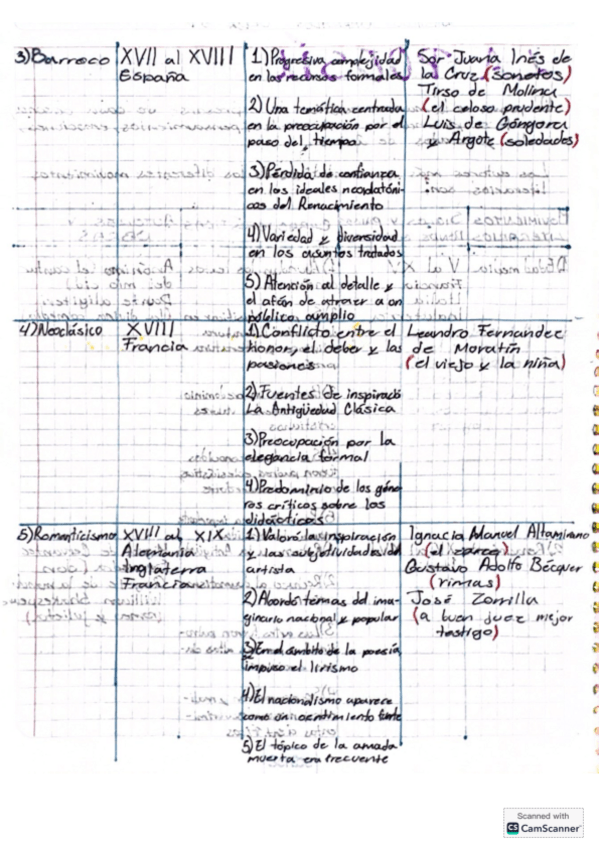 3)Barroco
XVII al XVIII
España
1)Progresiva complejidad
en los recursos formales
2)Una temática centrada
en la preocupación por el
paso del tiempo
3)Pérdida de confianza
en los ideales neoplatóni-
cos del Renacimiento
4)Variedad y diversidad
en los asuntos tratados
5)Atención al detalle y
el afán de atraer a un
público amplio
Sor Juana Inés de
la Cruz (sonetos)
Tirso de Molina
(el celoso prudente)
Luis de Góngora
y Argote (soledades)
4)Neoclásico
XVIII
Francia
1)Conflicto entre el
honor, el deber y las
pasiones
2)Fuentes de inspiració
La Antigüedad Clásica
3)Preocupación por la
elegancia formal
4)Predominio de los géne-
ros críticos sobre los
didácticos
Leandro Fernandez
de Moratín
(el viejo y la niña)
5)Romanticismo
XVIII al XIX
Alemania
Inglaterra
Francia
1)Valoró la inspiración
y las subjetividades del
artista
2)Abordó temas del ima-
ginario nacional y popular
3)En el ámbito de la poesía
impuso el lirismo
4)El nacionalismo aparece
como un sentimiento fuerte
5)El tópico de la amada
muerta era frecuente
Ignacio Manuel Altamirano
(el zarco)
Gustavo Adolfo Bécquer
(rimas)
José Zorrilla
(a buen juez mejor
testigo)
Scanned with
CS CamScanner